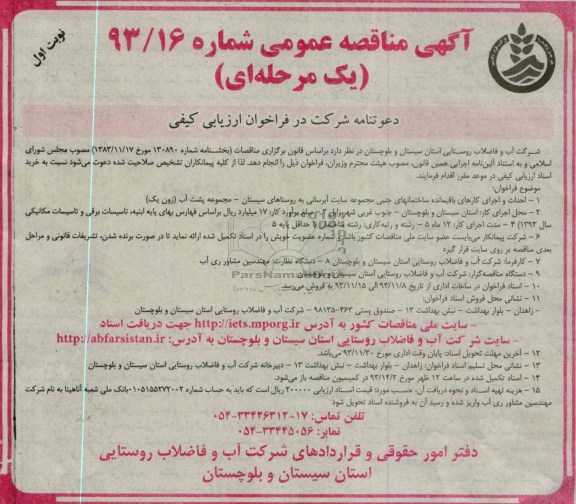 نوبت اول
آگهی مناقصه عمومی شماره ۹۳/۱۶
(یک مرحله‌ای)
دعوتنامه شرکت در فراخوان ارزیابی کیفی
شرکت آب و فاضلاب روستایی استان سیستان و بلوچستان در نظر دارد براساس قانون برگزاری مناقصات (بخشنامه شماره ۱۳۰۸۹۰ مورخ ۱۳۸۳/۱۱/۱۷) مصوب مجلس شورای
اسلامی و به استناد آئین‌نامه اجرایی همین قانون، مصوب هیئت محترم وزیران، فراخوان ذیل را انجام دهد. لذا از کلیه پیمانکاران تشخیص صلاحیت شده دعوت می‌شود نسبت به خرید
اسناد ارزیابی کیفی در موعد مقرر اقدام فرمایند.
موضوع فراخوان:
۱ - احداث و اجرای کارهای باقیمانده ساختمانهای جنبی مجموعه سایت آبرسانی به روستاهای سیستان - مجموعه پشت آب (زون یک)
۲ - محل اجرای کار: استان سیستان و بلوچستان - جنوب غربی شهر زابل ۳ - مبلغ برآورد کار: ۱۷ میلیارد ریال براساس فهارس بهای پایه ابنیه، تاسیسات برقی و تاسیسات مکانیکی
سال ۱۳۹۳) ۴ - مدت اجرای کار: ۱۲ ماه ۵ - رشته و رتبه‌کاری: رشته حداقل پایه ۵
۶ - شرکت پیمانکار می‌بایست عضو سایت ملی مناقصات کشور باشد و شماره عضویت خویش را در اسناد تکمیل شده ارائه نماید تا در صورت برنده شدن، تشریفات قانونی و مراحل
بعدی مناقصه بر روی سایت قرار گیرد
۷ - کارفرما: شرکت آب و فاضلاب روستایی استان سیستان و بلوچستان ۸ - دستگاه نظارت: مهندسین مشاور ری آب
۹ - دستگاه مناقصه‌گزار: شرکت آب و فاضلاب روستایی استان سیستان و بلوچستان
۱۰ - اسناد فراخوان در ساعات اداری از تاریخ ۹۳/۱۱/۸ الی ۹۳/۱۱/۱۵ به فروش می‌رسد.
۱۱ - نشانی محل فروش اسناد فراخوان:
- زاهدان - بلوار بهداشت - نبش بهداشت ۱۳ - صندوق پستی ۳۶۳-۹۸۱۳۵ - شرکت آب و فاضلاب روستایی استان سیستان و بلوچستان
- سایت ملی مناقصات کشور به آدرس http://iets.mporg.ir جهت دریافت اسناد
- سایت شرکت آب و فاضلاب روستایی استان سیستان و بلوچستان به آدرس: http://abfarsistan.ir
۱۲ - آخرین مهلت تحویل اسناد: پایان وقت اداری مورخ ۹۳/۱۱/۳۰ می‌باشد.
۱۳ - نشانی محل تسلیم اسناد فراخوان: زاهدان - بلوار بهداشت - نبش بهداشت ۱۳ - دبیرخانه شرکت آب و فاضلاب روستایی استان سیستان و بلوچستان
۱۴ - اسناد تکمیل شده در ساعت ۱۲ ظهر مورخ ۹۳/۱۲/۲ در کمیسیون مناقصه باز می‌شود.
۱۵ - هزینه تهیه اسناد و نحوه دریافت آن، حسب مورد: قیمت اسناد ارزیابی ۲۰۰۰۰۰ ریال است که باید به حساب شماره ۰۱۰۵۱۵۵۲۷۲۰۰۲ بانک ملی شعبه آناهیتا به نام شرکت
مهندسین مشاور ری آب واریز شده و رسید آن به فروشنده اسناد تحویل شود
تلفن تماس: ۱۷-۳۳۴۲۶۳۱۲-۰۵۴
نمابر: ۳۳۴۴۵۰۵۶-۰۵۴
دفتر امور حقوقی و قراردادهای شرکت آب و فاضلاب روستایی
استان سیستان و بلوچستان